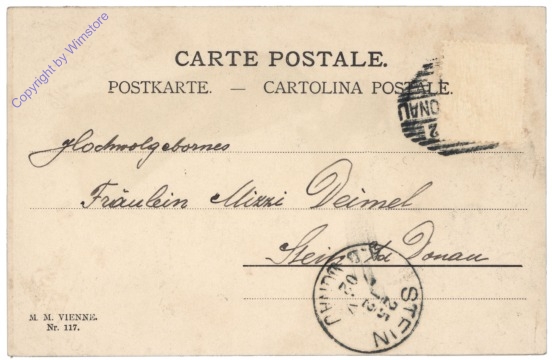 Copyright by Wimstore
CARTE POSTALE.
POSTKARTE. — CARTOLINA POSTALE.
DONAU
2
Hochwolgebornes
Fräulein Mizzi Deimel
Stein a/d Donau
STEIN
M. M. VIENNE.
Nr. 117.